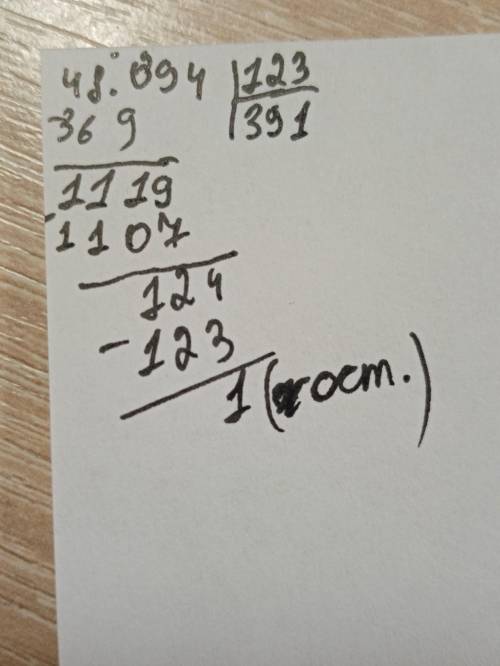 48.094 123
-369 391
-1119
1107
124
-123
1 (ост.)